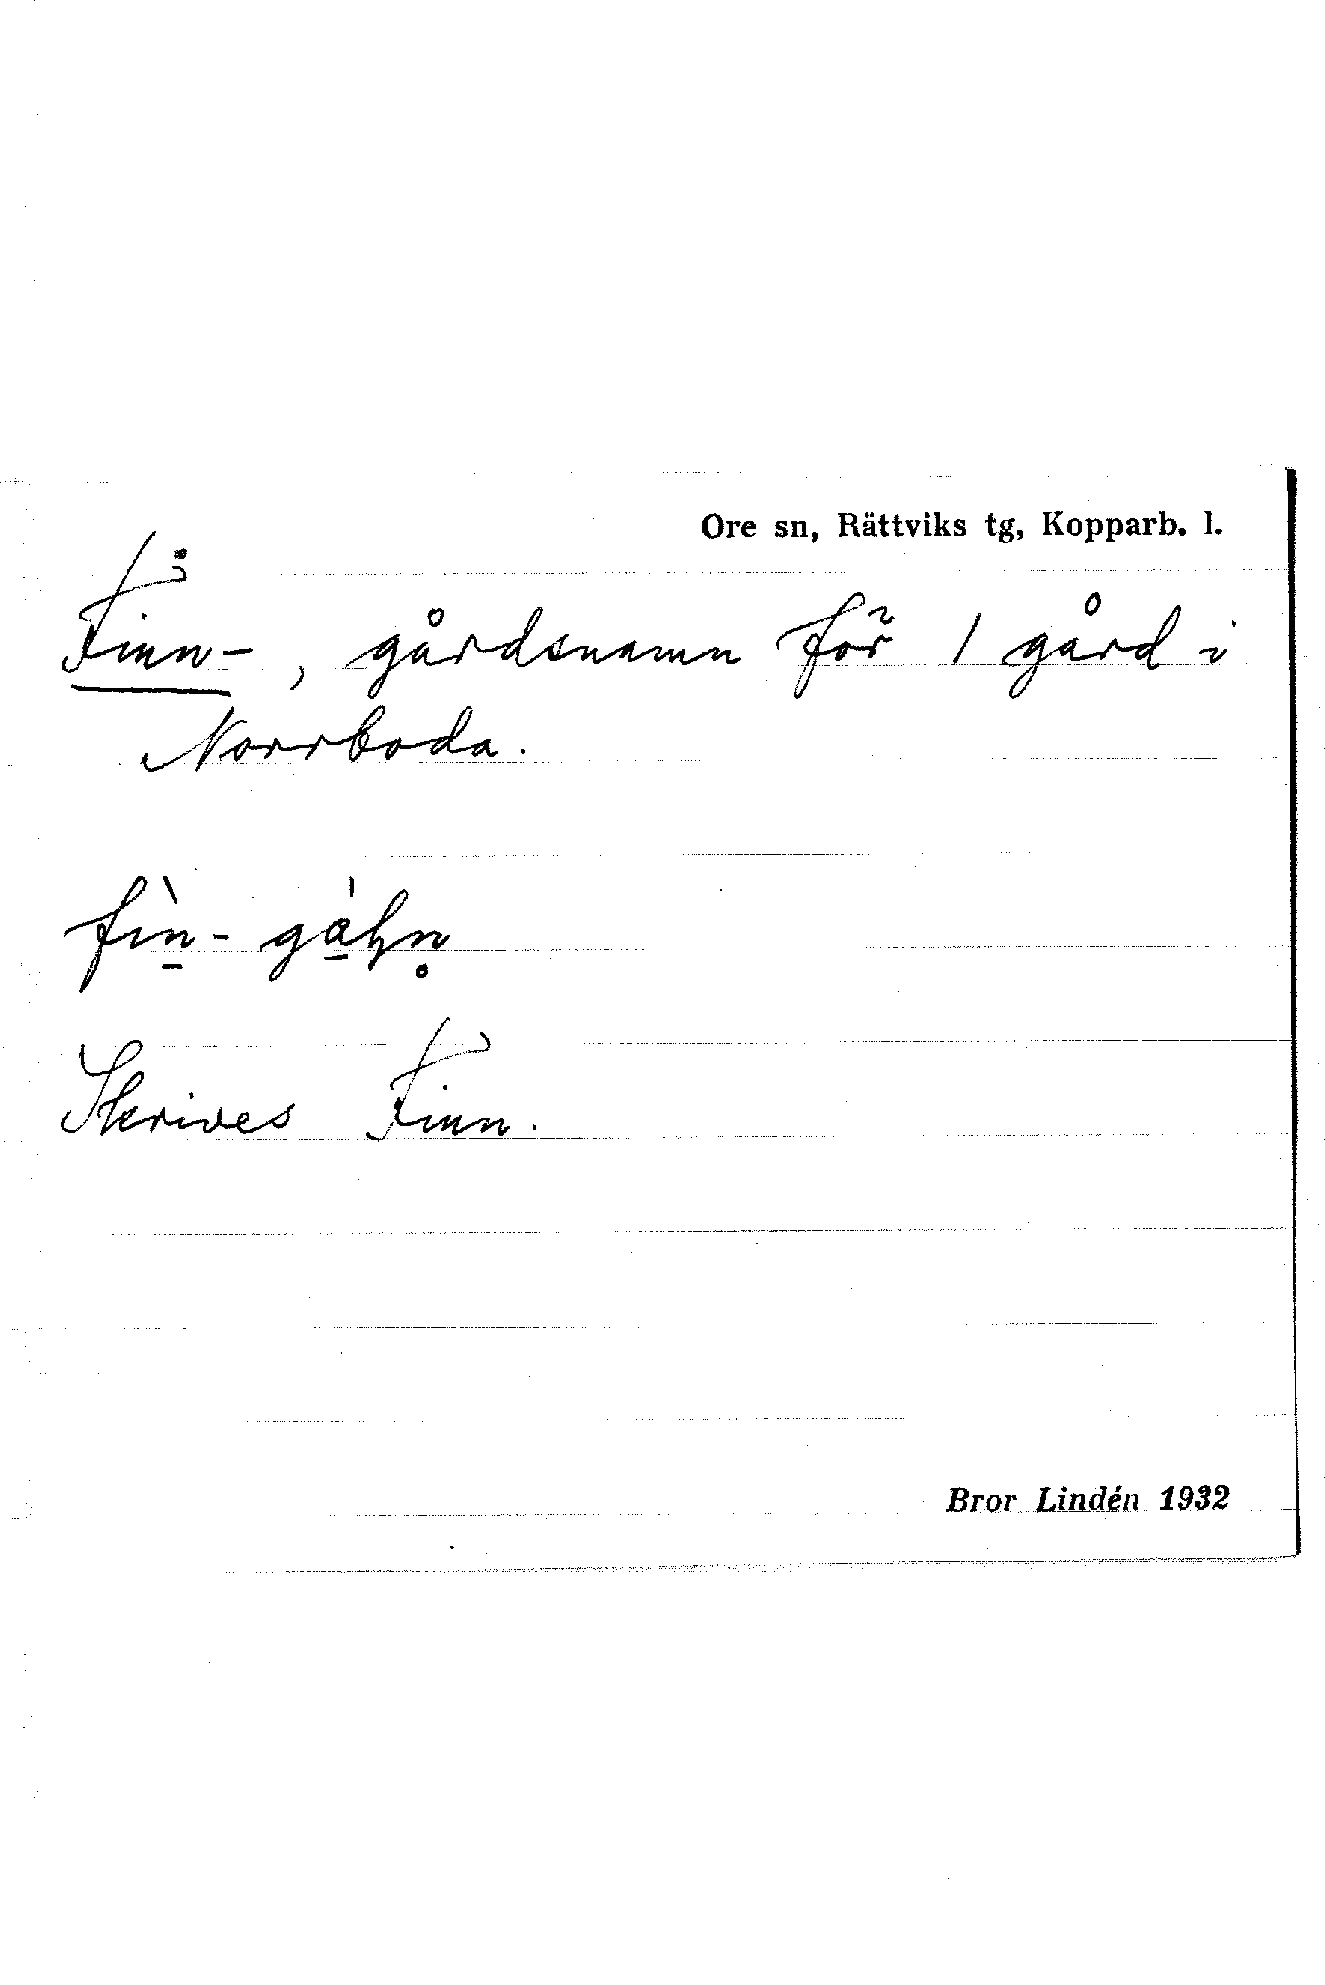 Ore sn, Rättviks tg, Kopparb. l.
Finn-, gårdsnamn för 1 gård i
Norrboda.
Skrives Finn.
Bror Lindén 1932